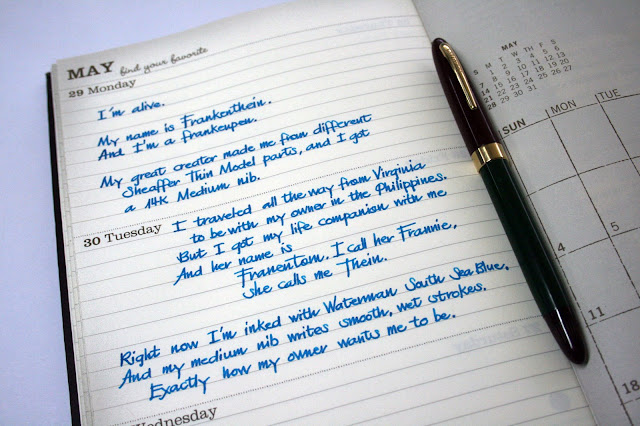 MAY find your favorite
29 Monday
I'm alive.
My name is Frankenthein.
And I'm a frankenpen.
My great creator made me from different
Sheaffer Thin Model parts, and I got
a 14K Medium nib.
30 Tuesday
I traveled all the way from Virginia
to be with my owner in the Philippines.
But I got my life companion with me
And her name is
Franentom. I call her Frannie,
she calls me Thein.
Right now I'm inked with Waterman South Sea Blue,
And my medium nib writes smooth, wet strokes.
Exactly how my owner wants me to be.
Wednesday
MAY
S M T W TH F S
1 2 3 4 5 6
7 8 9 10 11 12 13
14 15 16 17 18 19 20
21 22 23 24 25 26 27
28 29 30 31
SUN MON TUE
4 5
11
18